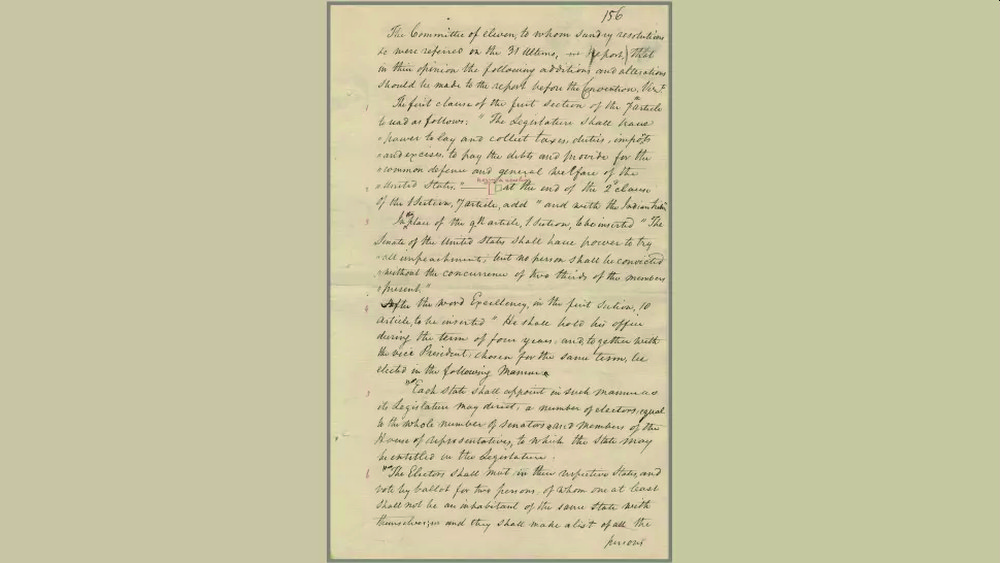 156
The Committee of eleven, to whom sundry resolutions
&c were referred on the 31 Ultimo, report, That
in their opinion the following additions and alterations
should be made to the report before the Convention, Vizt.
1 The first clause of the first section of the 7 article
to read as follows: "The Legislature shall have
"power to lay and collect taxes, duties, imposts
"and excises, to pay the debts and provide for the
"common defence and general welfare of the
2 "United States." — at the end of the 2d clause
of the 1 Section, 7 article, add "and with the Indian
3 In the place of the 9th article, 1 Section, to be inserted "The
Senate of the United States shall have power to try
"all impeachments; but no person shall be convicted
"without the concurrence of two thirds of the members
"present."
4 After the word Excellency, in the first Section, 10
article, to be inserted "He shall hold his office
during the term of four years, and together with
the vice President, chosen for the same term, be
elected in the following Manner.
5 "Each State shall appoint in such manner as
its Legislature may direct, a number of electors, equal
to the whole number of senators and members of the
House of representatives, to which the State may
be entitled in the Legislature.
6 "The Electors shall meet in their respective States, and
vote by ballot for two persons, of whom one at least
shall not be an inhabitant of the same State with
themselves; and they shall make a list of all the
persons